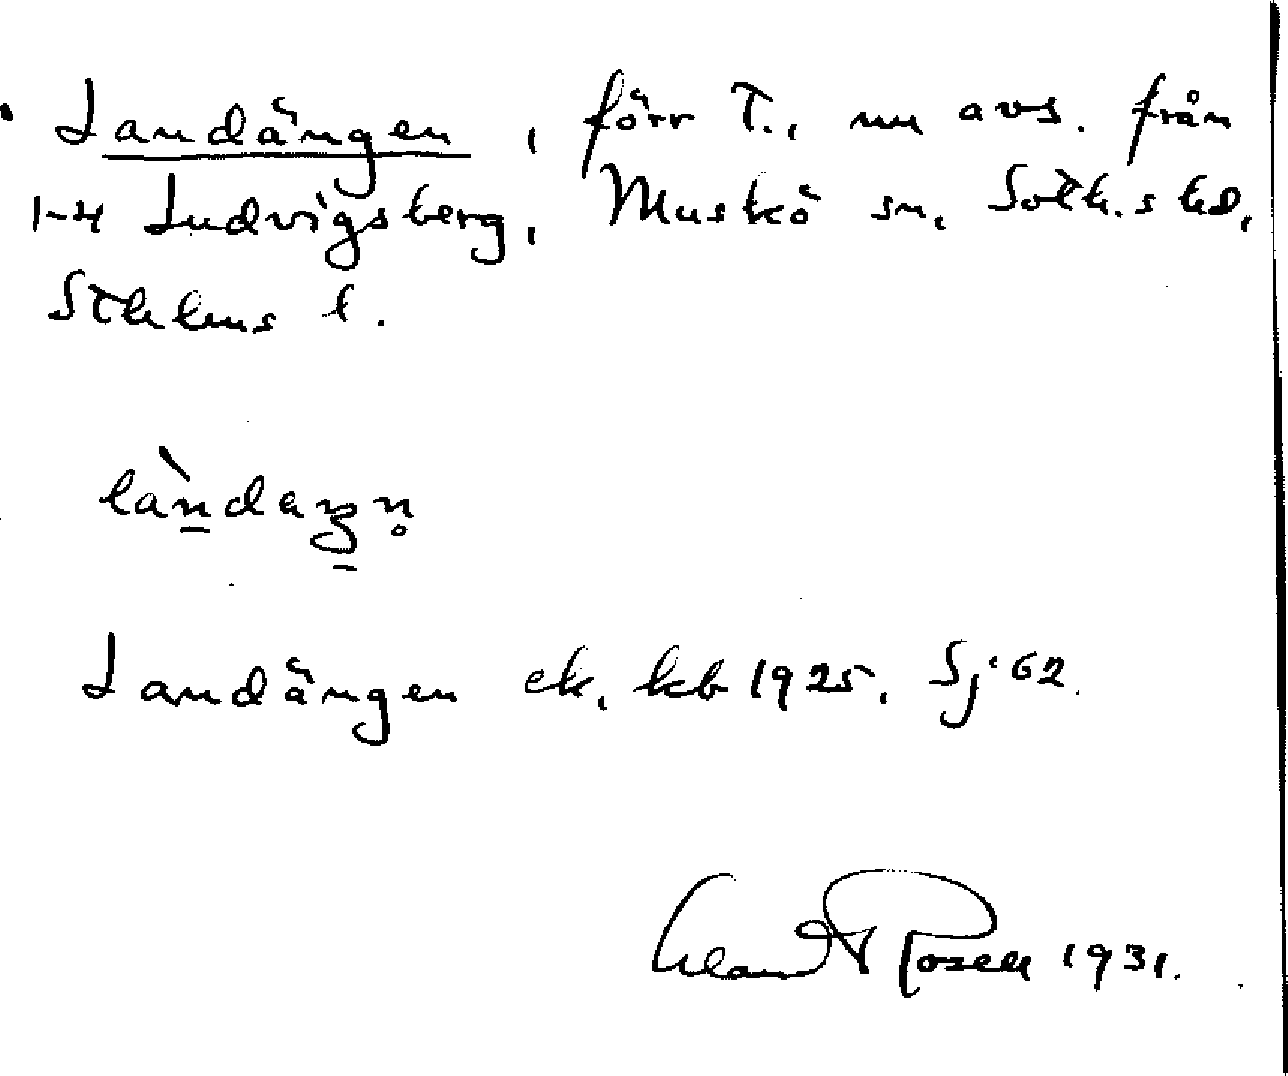 Landängen, förr T., nu avs. från
1-4 Ludvigsberg, Muskö sn, Soth.s hd,
Sthlms l.
Landängen ek. kb 1925. Sj:62.
Rosell 1931.